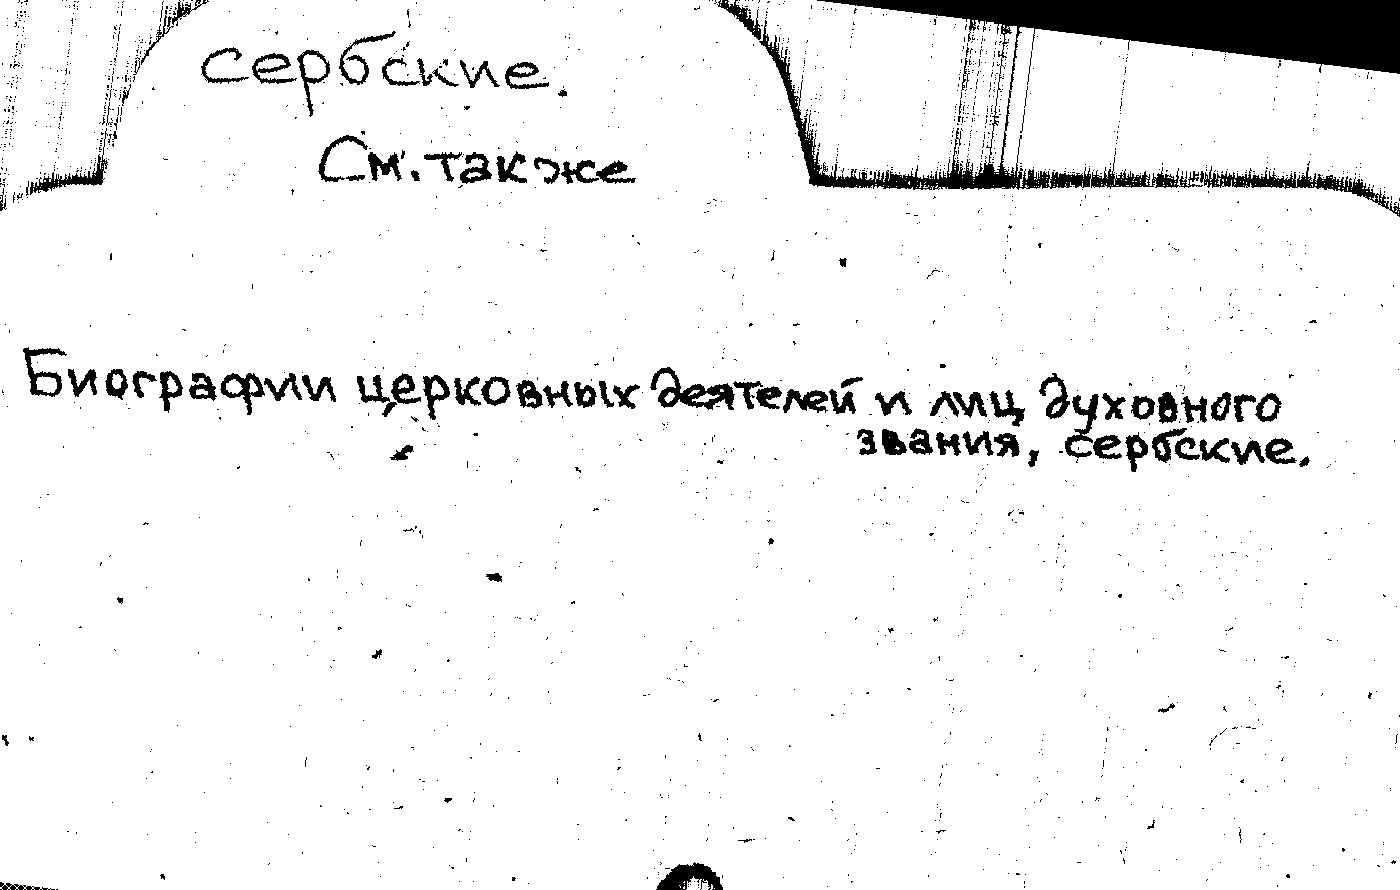 сербские.
См. также
Биографии церковных деятелей и лиц духовного
звания, сербские.